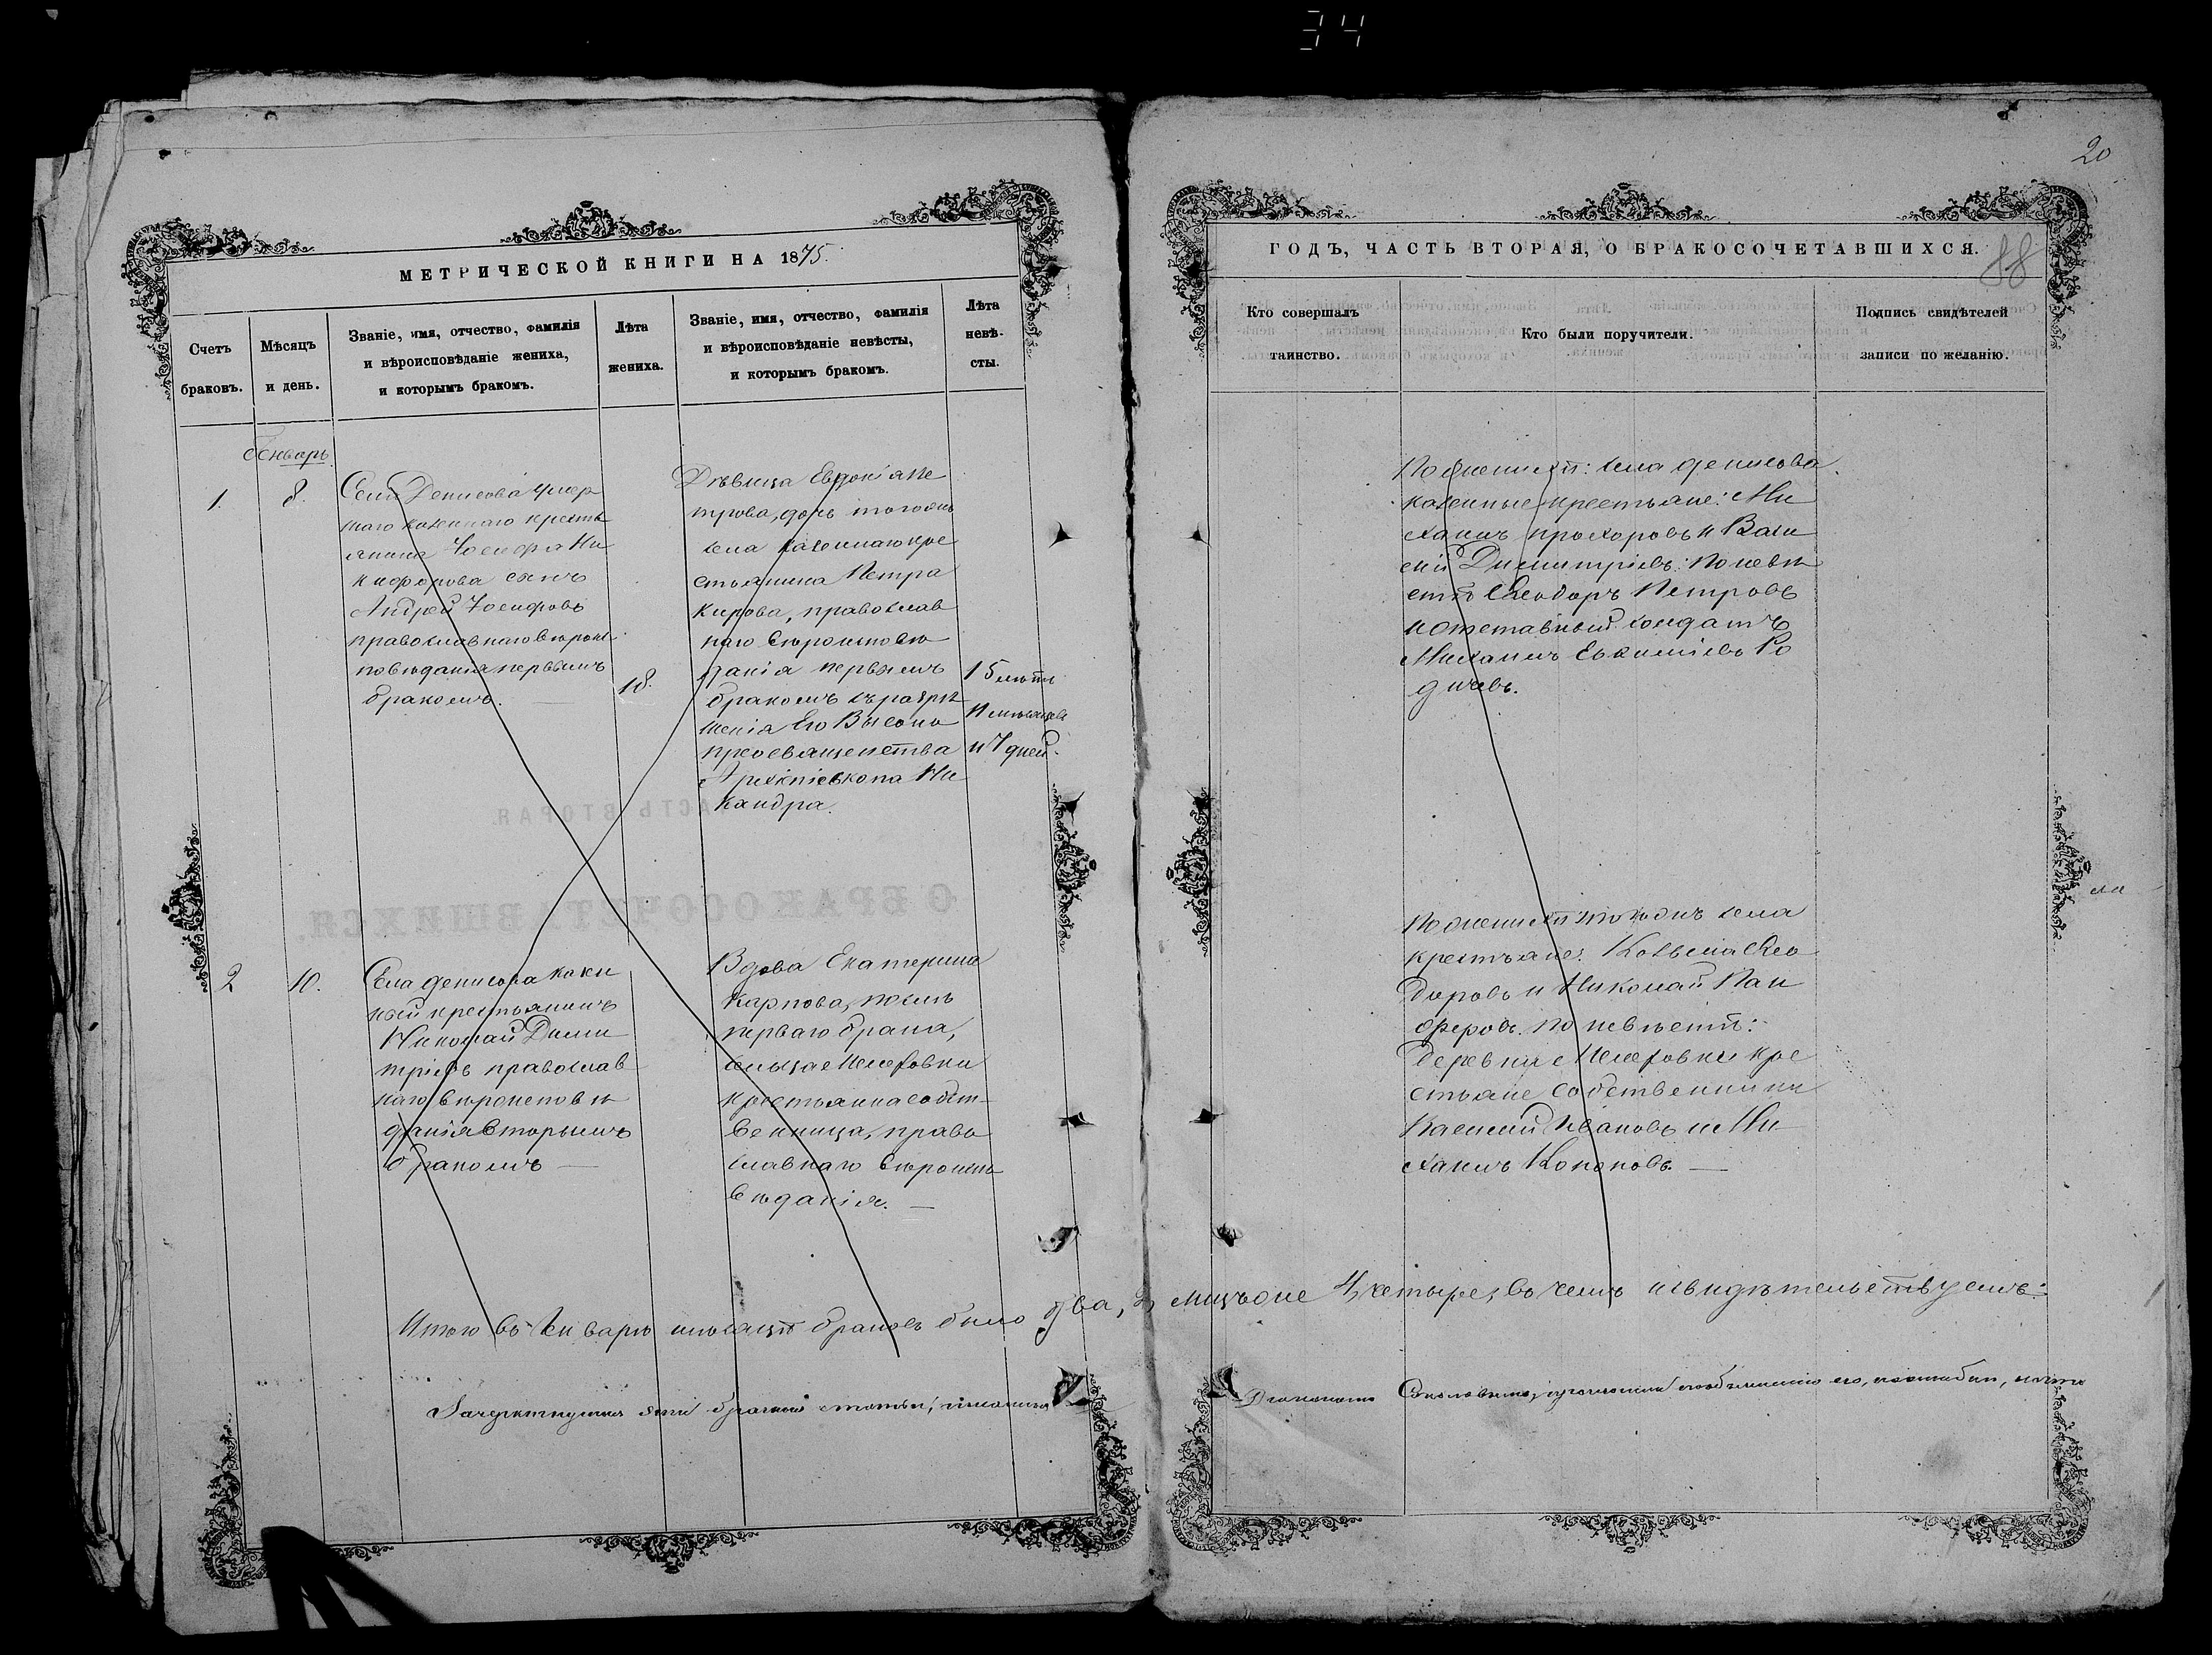 34
20
88
МЕТРИЧЕСКОЙ КНИГИ НА 1875.
Счетъ браковъ.
Мѣсяцъ и день.
Званіе, имя, отчество, фамилія
и вѣроисповѣданіе жениха,
и которымъ бракомъ.
Лѣта
жениха.
Званіе, имя, отчество, фамилія
и вѣроисповѣданіе невѣсты,
и которымъ бракомъ.
Лѣта
невѣ-
сты.
Генварь
1.
8.
Села Денисова умер
шаго казеннаго кресть
янина Іосифа Ни
кифорова сынъ
Андрей Іосифовъ
православнаго вѣроис
повѣданія первымъ
бракомъ.
18.
Дѣвица Евдокія Пе
трова, дочь тогожъ
села казеннаго кре
стьянина Петра
Кирова, православ
наго вѣроисповѣ
данія первымъ
бракомъ съ разрѣ
шенія Его Высоко
преосвященства
Архіепископа Ни
кандра.
15 лѣтъ
и 7 дней.
2
10.
Села Денисова казен
ный крестьянинъ
Николай Дими
тріевъ православ
наго вѣроисповѣ
данія вторымъ
бракомъ —
Вдова Екатерина
Карпова, послѣ
перваго брака,
крестьянка собст-
венница, право
славнаго вѣроиспо
вѣданія. —
Итого въ Генварѣ мѣсяцѣ браковъ было два, 2, лицъ оне 4, четыре, въ чемъ и свидѣтельствуемъ:
Зачеркнутыя эти брачныя статьи, писанныя
ГОДЪ, ЧАСТЬ ВТОРАЯ, О БРАКОСОЧЕТАВШИХСЯ.
Кто совершалъ
таинство.
Кто были поручители.
Подпись свидѣтелей
записи по желанію.
По женихѣ: села Денисова
казенные крестьяне: Ми
хаилъ Прохоровъ и Васи
лій Димитріевъ: по невѣ
стѣ Ѳеодоръ Петровъ
и отставный солдатъ
Михаилъ Евфиміевъ Ро
дичевъ.
По женихѣ тогожъ села
крестьяне: Козьма Ѳео
доровъ и Николай Пан
феровъ. по невѣстѣ:
деревни кре
стьяне собственники
Василій Ивановъ и Ми
хаилъ Кононовъ. —
Дьякономъ Соколовымъ,